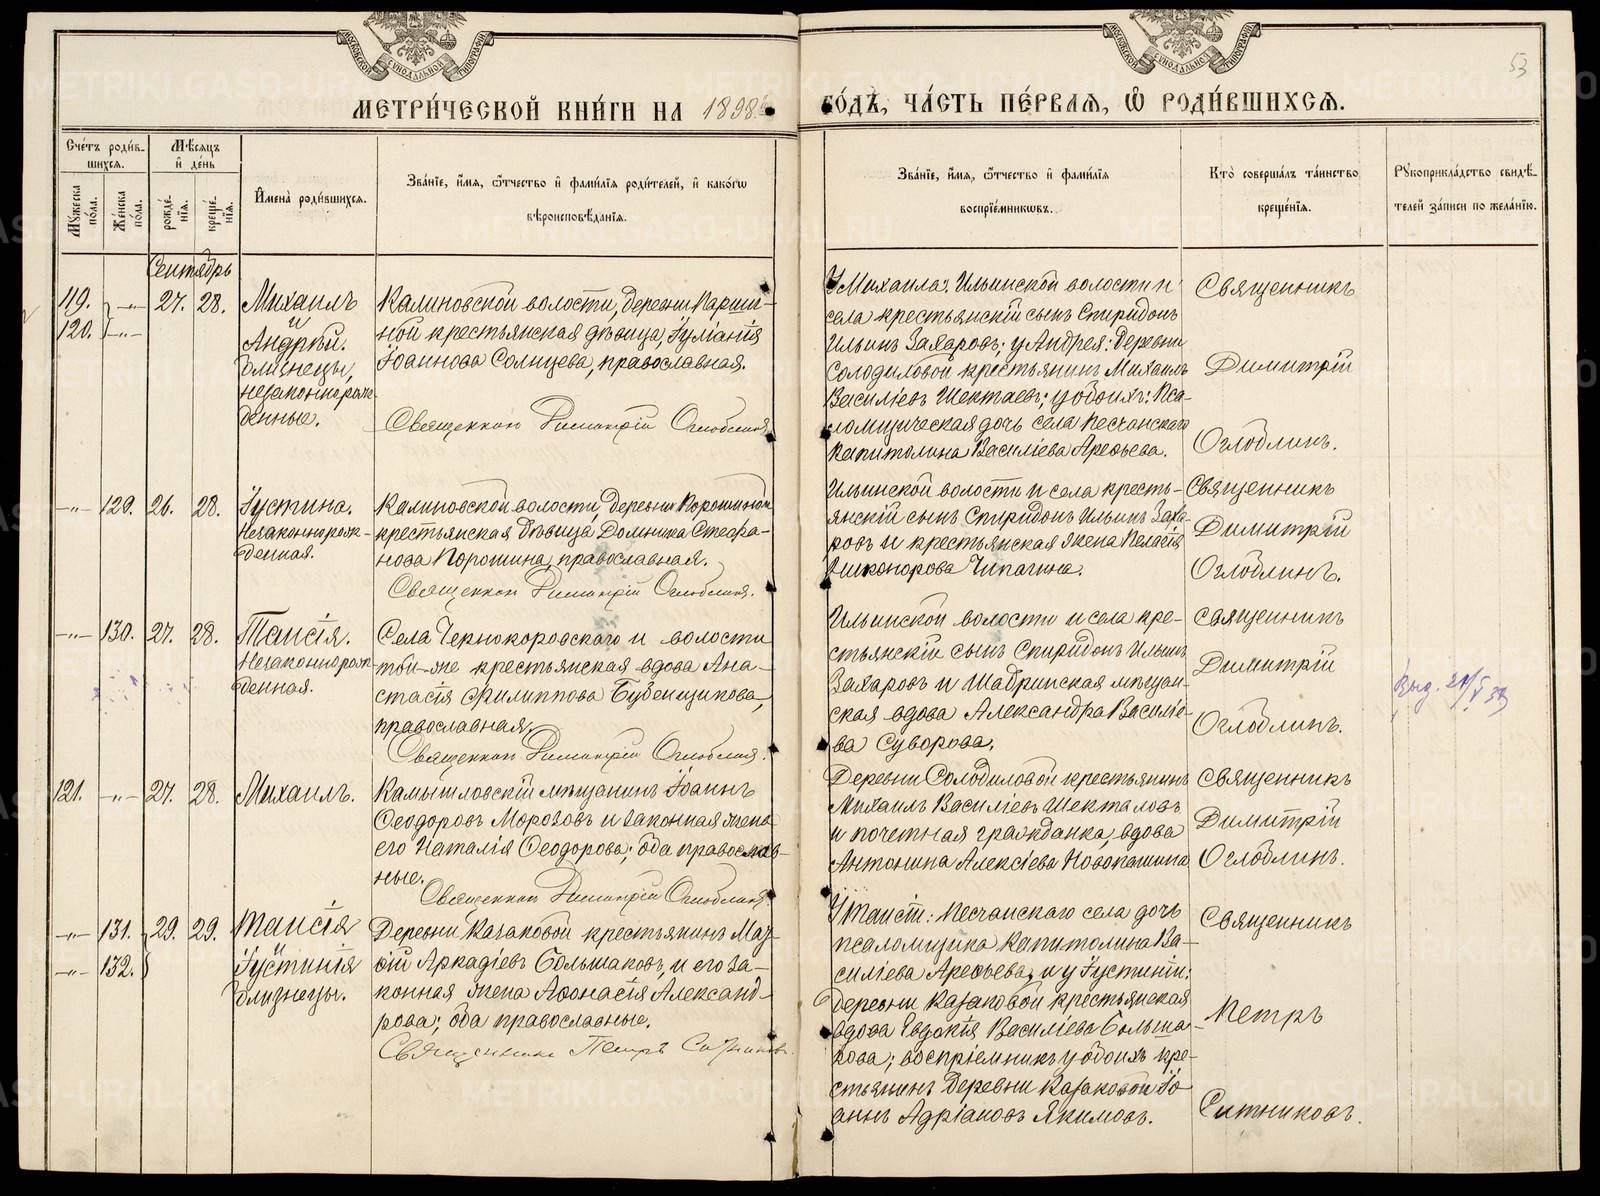 МЕТРИ́ЧЕСКОЙ КНИ́ГИ НА 1898й
ГО́ДЪ, ЧА́СТЬ ПЕ́РВАЯ, Ѽ РОДИ́ВШИХСЯ.
53
Сче́тъ роди́в-
шихся.
Мѣ́сяцъ
и҆ де́нь
Мꙋжеска по́ла.
Же́нска по́ла.
рожде́-нїѧ.
креще́-нїѧ.
И҆мена̀ роди́вшихся.
Зва́нїе, и҆́мя, ѻ҆́тчество и҆ фами́лїя роди́телей, и҆ како́гѡ
вѣроисповѣ́данїя.
Зва́нїе, и҆́мя, ѻ҆́тчество и҆ фами́лїя
воспрїе́мникѡвъ.
Кто̀ соверша́лъ та́инство
креще́нїя.
Рꙋкоприкла́дство свидѣ́-
телей за́писи по жела́нїю.
Сентябрь
119. 120. —"— —"— 27. 28.
Михаилъ
и
Андрей.
Близнецы,
незаконнорож-
денные.
Калиновской волости, деревни Парши-
ной крестьянская дѣвица, Іуліанія
Іоаннова Солнцева, православная.
Священник Димитрій Оглоблинъ
У Михаила: Ильинской волости и
села крестьянскій сынъ Спиридонъ
Ильинъ Захаровъ; у Андрея: Деревни
Солодиловой крестьянинъ Михаилъ
Василіевъ Шектаевъ; у обоихъ: Пса-
ломщическая дочь села Песчанскаго
Капитолина Василіева Арефьева.
Священникъ
Димитрій
Оглоблинъ.
—"— 129. 26. 28.
Іустина.
Незаконнорож-
денная.
Калиновской волости, деревни Порошиной
крестьянская дѣвица Домника Стефа-
нова Порошина, православная.
Священник Димитрій Оглоблинъ.
Ильинской волости и села кресть-
янскій сынъ Спиридонъ Ильинъ Заха-
ровъ и крестьянская жена Пелагія
Никонорова Чипагина.
Священникъ
Димитрій
Оглоблинъ.
—"— 130. 27. 28.
Таисія.
Незаконнорож-
денная.
Села Чернокоровскаго и волости
той-же крестьянская вдова Ана-
стасія Филиппова Бубенщикова,
православная.
Священник Димитрій Оглоблинъ.
Ильинской волости и села кре-
стьянскій сынъ Спиридонъ Ильинъ
Захаровъ и Шадринская мѣщан-
ская вдова Александра Василіе-
ва Суворова.
Священникъ
Димитрій
Оглоблинъ.
Выд.
121. —"— 27. 28.
Михаилъ.
Камышловскій мѣщанинъ Іоаннъ
Ѳеодоровъ Морозовъ и законная жена
его Наталія Ѳеодорова; оба православ-
ные.
Священник Димитрій Оглоблинъ.
Деревни Солодиловой крестьянинъ
Михаилъ Василіевъ Шекталовъ
и почетная гражданка, вдова
Антонина Алексіева Новопашина
Священникъ
Димитрій
Оглоблинъ.
—"— 131. 29. 29.
—"— 132.
Таисія
и
Іустинія
близнецы.
Деревни Казаковой крестьянинъ Маѵ-
сій Аркадіевъ Большаковъ, и его за-
конная жена Аѳонасія Александ-
рова; оба православные.
Священникъ Петръ Ситниковъ.
У Таисіи: Песчанскаго села дочь
псаломщика Капитолина Ва-
силіева Арефьева, и у Іустиніи:
деревни Казаковой крестьянская
вдова Евдокія Василіева Больша-
кова; воспріемникъ у обоихъ кре-
стьянинъ деревни Казаковой Іо-
аннъ Адріановъ Якимовъ.
Священникъ
Петръ
Ситниковъ.